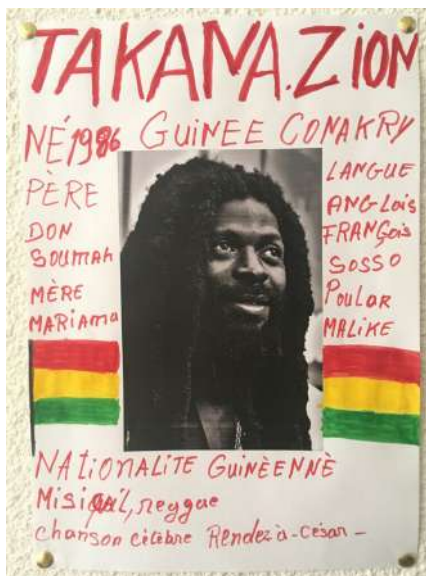 TAKANA.ZION
NÉ 1986 GUINEE CONAKRY
PÈRE
DON
SOUMAH
MÈRE
MARIAMA
LANGUE
ANGLais
FRANÇais
SOSSO
POULAR
MALIKE
NATIONALITE GUINÈENNÈ
reggae
chanson célèbre Rendez à-César-